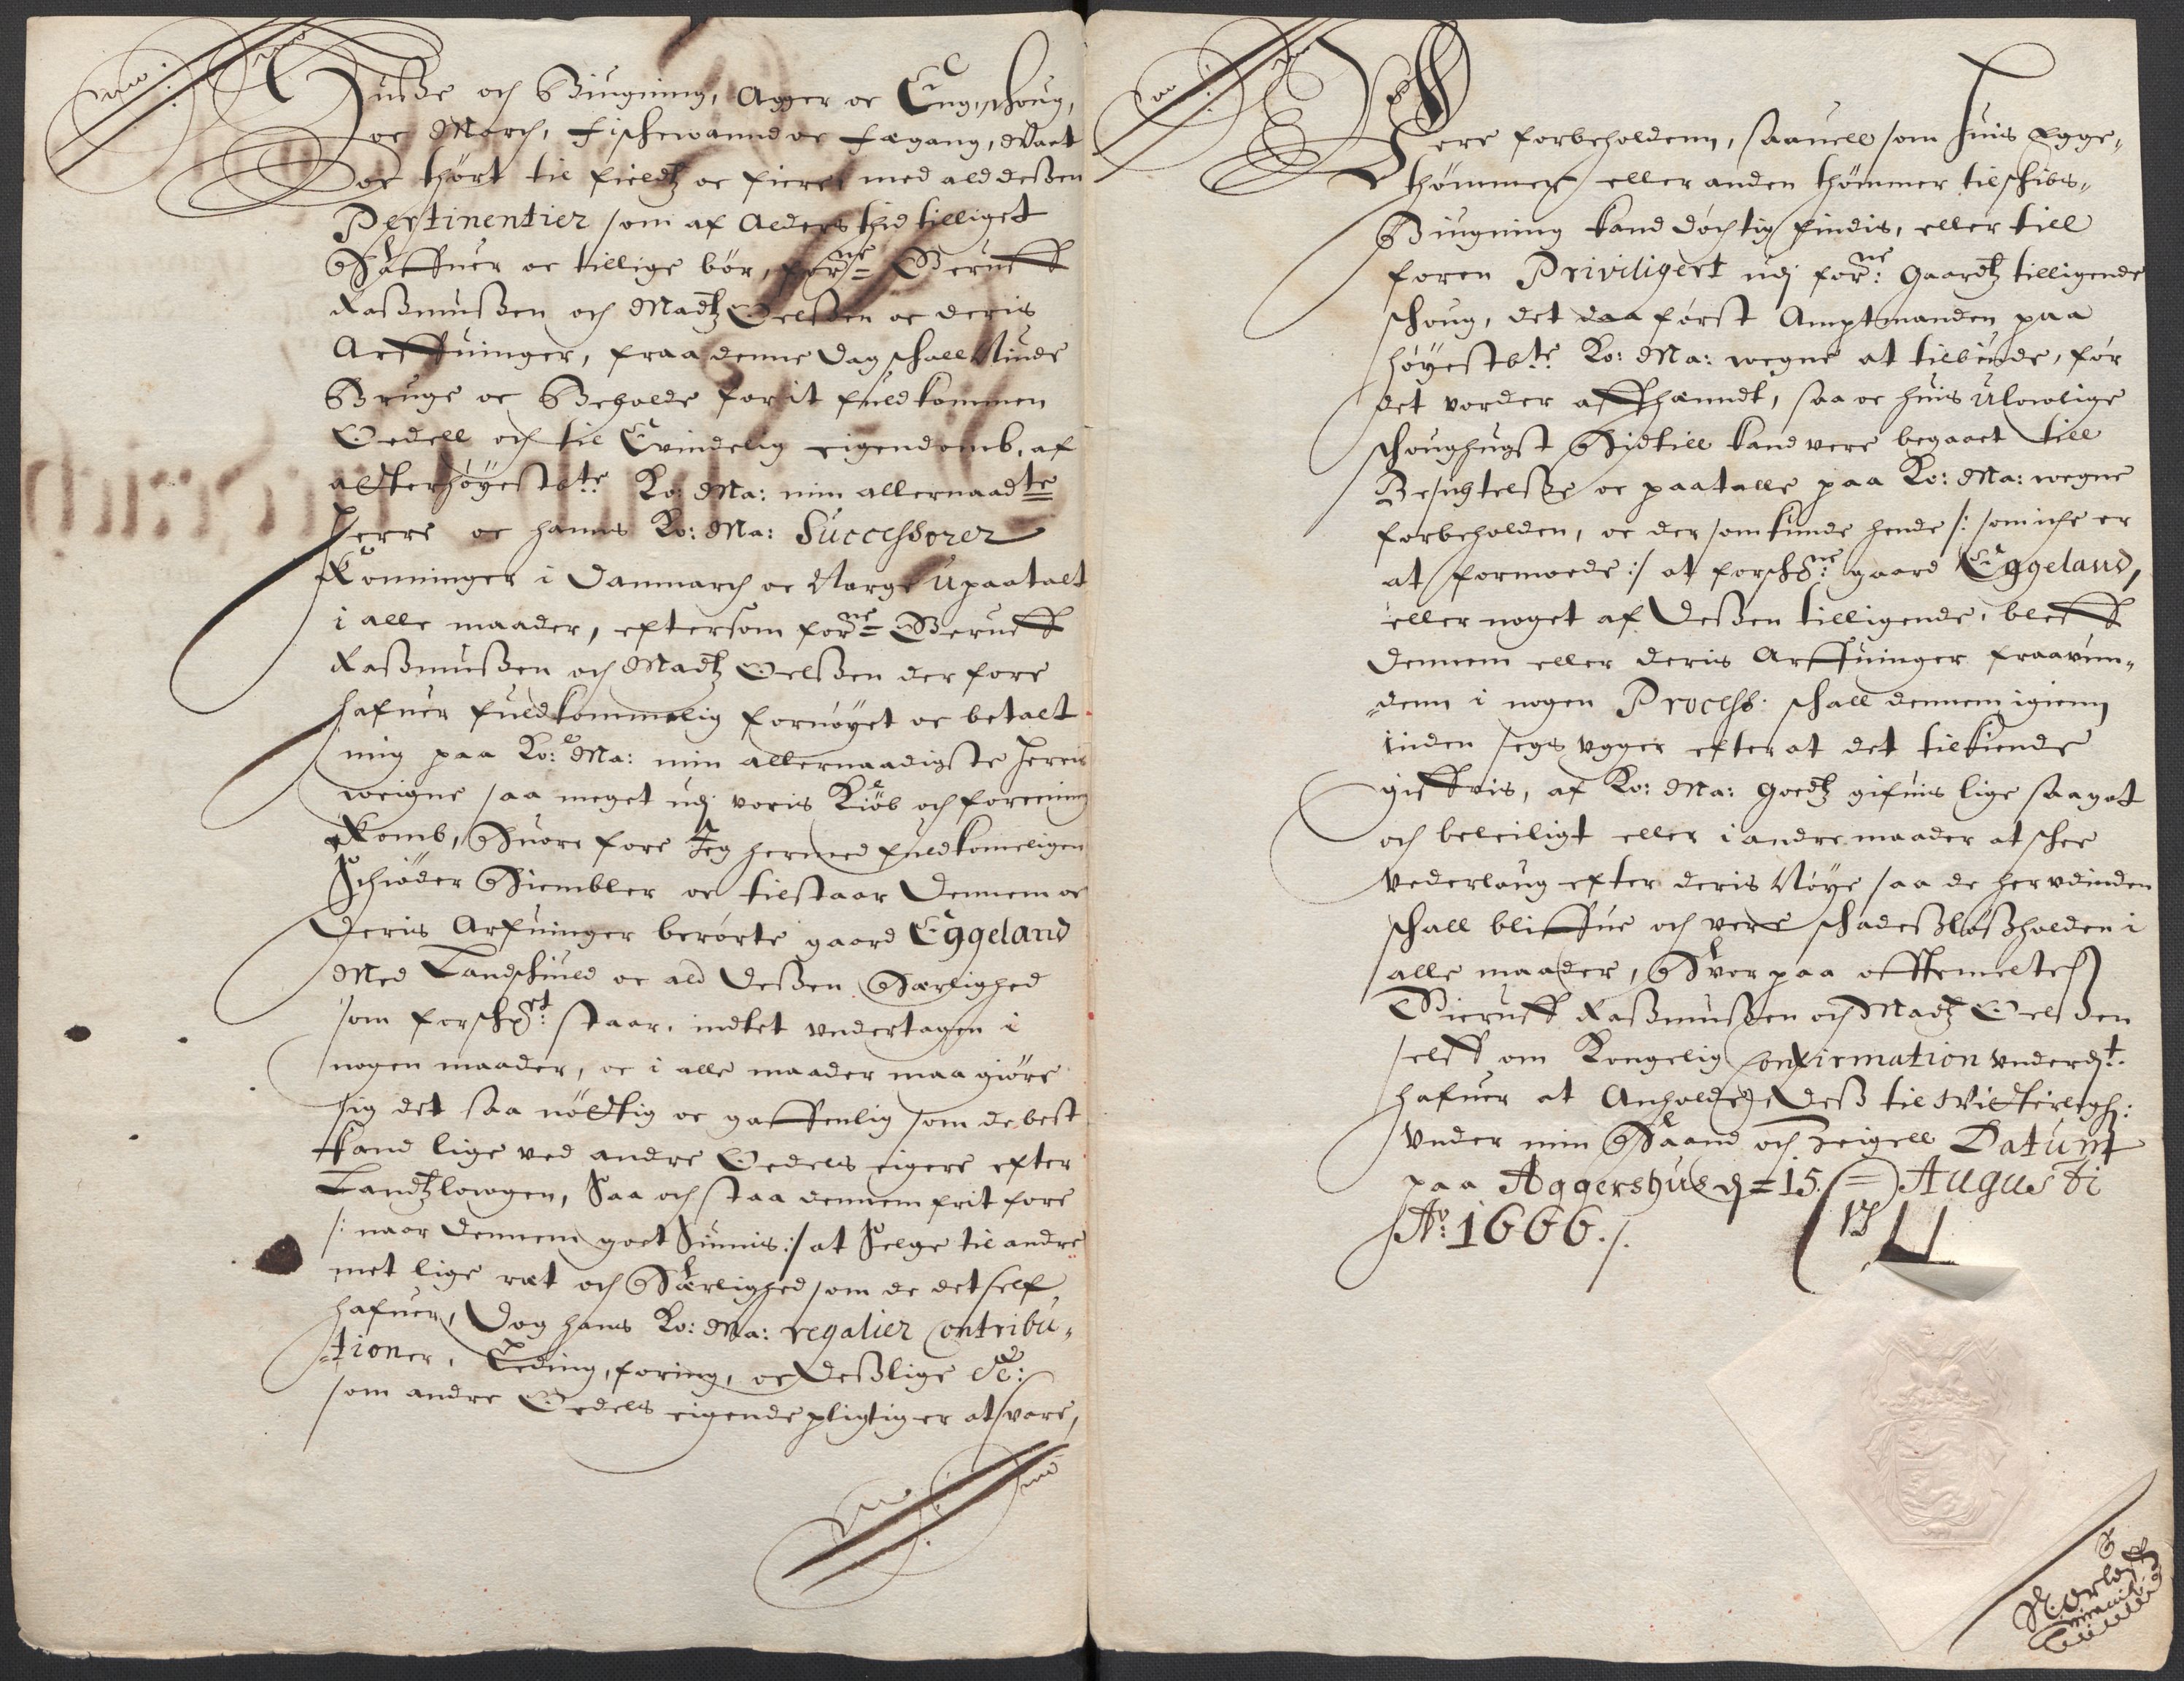 Huuße och Biugning, Agger oc Eng, schoug,
oc March, Fischewannd oc fægang, Waat
oc thørt til fieldtz oc fiere, med ald deßen
Pertinentier som af Alders thid tilliget
Haffuer oc tillige bør, forne Berneff
Raßmußen och Madtz Oelßen oc deris
Arffuinger, fraa denne dag schall Niude
Bruge oc Beholde for it fuldkommen
Oedell och til Evindelig eigendomb, af
alterhøyestbte Ko: Ma: min allernaadte
Herre oc hanns Ko: Ma: Successorer
Konninger i Danmarch oc Norge Upaatalt
i alle maader, eftersom forne Berneff
Raßmußen och Madtz Oelßen der fore
hafuer fuldkommelig fornøyet oc betalt
mig paa Ko: Ma: min allernaadigste Herris
weigne saa meget udj voris Kiøb och foreening
Komb, Huore fore Jeg hermed fuldkomeligen
Schiøder Hiembler oc tilstaar dennem oc
deris Arfuinger berørte gaard Eggeland
Med Landschiuld oc ald deßen Herlighed
som forschrt: staar, indtet undertagen i
nogen maader, oc i alle maader maa giøre
sig det saa nøttig oc gaffenlig som de best
kand lige ved andre Oedels eigere efter
Landtzlowgen, Saa och staa dennem frit fore
/: naar dennem goet Siunis :/ at Selge til andre
met lige ræt och Herlighed som de det self
hafuer, Dog hans Ko: Ma: regalier Contribu-
tioner, Leding, foring, oc deßlige &c:
som andre Oedels eigende pligtig er at svare,
Vere forbeholdenn, saauell som huis Egge-
thømmer eller anden thømmer til schibs-
Biugning kand døchtig findis, eller till
foren Priviligert udj forne: Gaardtz tilligende
schoug, det daa først Amptmanden paa
høyestbte Ko: Ma: wegne at tilbiude, før
det vorder affhænndt, saa oc huis Ulowlige
schoughugst Hidtill kand vere begaaet till
Besigtelße oc paatalle paa Ko: Ma: wegne
forbeholden, oc der som kunde hende /: som iche er
at formoede :/ at forschrne: gaard Eggeland,
eller noget af deßen tilligende, bleff
dennem eller deris Arffuinger fraavun-
denn i nogen Process: schall dennem igienn
inden sex Ugger efter at det tilkiende
giffuis, af Ko: Ma: goedtz gifuis lige saa got
och beleiligt eller i andre maader at schee
vederlaug efter deris Nøye saa de her udinden
schall bliffue och vere schadesløßholden i
alle maader, Hvor paa offtemelte
Bierneff Raßmußen och Madtz Oelßen
selff om Kongelig Confirmation underdt:
hafuer at Anholde, Deß til Witterligh:
under min Haand och zeigell Datum
paa Aggershus d = 15 = Augusti
Ao: 1666 ./.